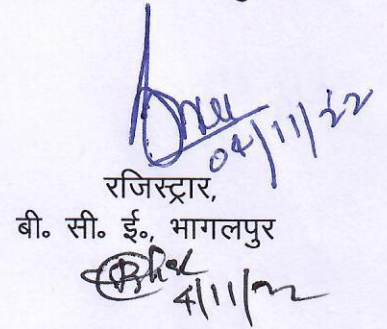 04/11/22
रजिस्ट्रार,
बी॰ सी॰ ई॰, भागलपुर
4/11/22